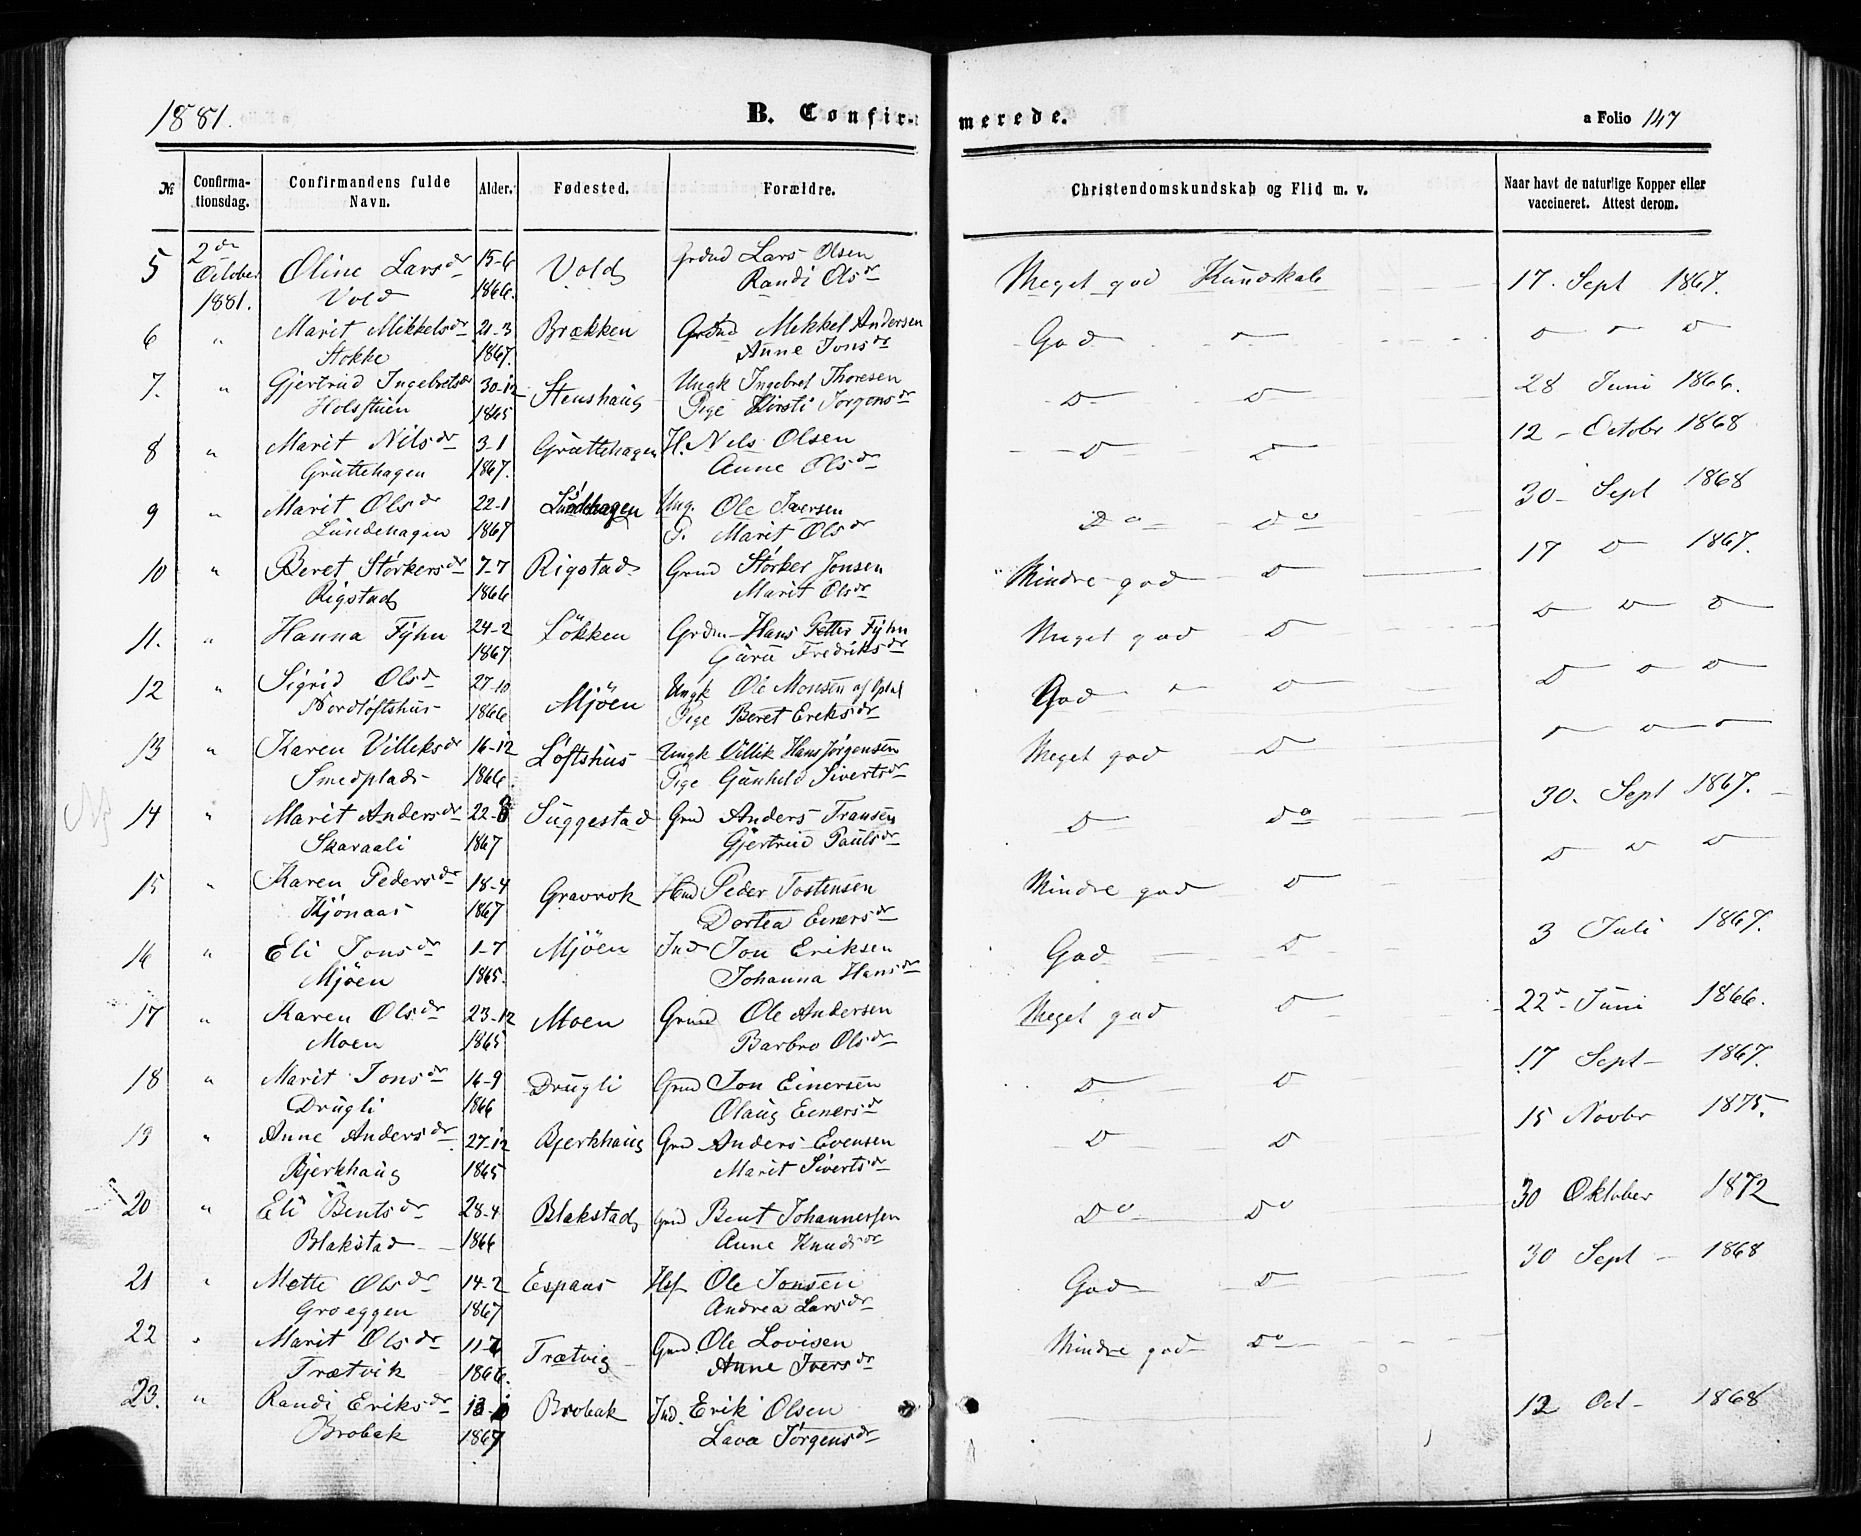 1881.
B. Confirmerede.
a Folio 147
№
Confirmationsdag.
Confirmandens fulde Navn.
Alder.
Fødested.
Forældre.
Christendomskundskab og Flid m. v.
Naar havt de naturlige Kopper eller vaccineret. Attest derom.
5 2den October 1881. Oline Larsdr Vold 15-6 1866. Vold Grdnd Lars Olsen Randi Olsdr Meget god Kundskab 17. Sept 1867.
6 " Marit Mikkelsdr Stokke 21-3 1867. Brækken Grdnd Mikkel Andersen Anne Jonsdr God
7. " Gjertrud Ingebretsdr Holsstuen 30-12 1865 Stenshaug Ungk Ingebret Thoresen Pige Kirsti Jørgensdr D D 28 Juni 1866.
8 " Marit Nilsdr Gruttehagen 3-1 1867. Gruttehagen H. Nels Olsen Anne Olsdr D D 12 - Octobr 1868
9 " Marit Olsdr Lundehagen 22-1 1867 Lundehagen Ung. Ole Iversen P. Marit Olsdr Do Do 30- Sept 1868
10 " Beret Størkersdr Rigstad 7-7 1866 Rigstad Grnd Størker Jonsen Marit Olsdr Mindre god D 17 D 1867.
11. " Hanna Fyhn 24-2 1867 Løkken Grdm Hans Petter Fyhn Guru Fredriksdr Meget god D D D D
12 " Sigrid Olsdr Nordløftshus 27-10 1866 Mjöen Ungk Ole Monsen af Opdal Pige Beret Ereksdr God D D D D
13 " Karen Villiksdr Smedplads 16-12 1866. Löftshus Ungk Villik Hans Jørgensen Pige Gunhild Sivertsdr Meget god D
14 " Marit Andersdr Skaraali 22-8 1867 Suggestad Grnd Anders Fransen Gjertrud Paulsdr D Do 30. Sept 1867.
15 " Karen Pedersdr Kjönaas 18-4 1867 Gravrok Hmd Peder Tostensen Dortea Einersdr Mindre god D D D D
16 " Eli Jonsdr Mjöen 1-7 1865. Mjöen Ind Jon Eriksen Johanna Hansdr God D 3 Juli 1867.
17 " Karen Olsdr Moen 23-12 1865 Moen Grmd Ole Andersen Barbro Olsdr Meget god D 22. Juni 1866.
18 " Marit Jonsdr Drugli 16-9 1866 Drugli Grnd Jon Einersen Olaug Einersdr D D 17 Sept 1867.
19 " Anne Andersdr Bjerkhaug 27-12 1865 Bjerkhaug Grnd Anders Evensen Marit Sivertsdr D D 15 Novbr 1875.
20 " Eli Bentsdr Blakstad 28-4 1866 Blakstad Grnd Bent Johannessen Anne Knudsdr Do Do 30 Oktober 1872
21 " Mette Olsdr Groeggen 14-2 1867 Espaas Ole Jonsen Andrea Larsdr God D 30 Sept - 1868
22 " Marit Olsdr Trætvik 1866. Trætvig Grnd. Ole Lovisen Anne Iversdr Mindre god Do
23. " Randi Eriksdr Brobak 1867 Brobak Ind. Erik Olsen Lava Jörgensdr 12 Oct - 1868